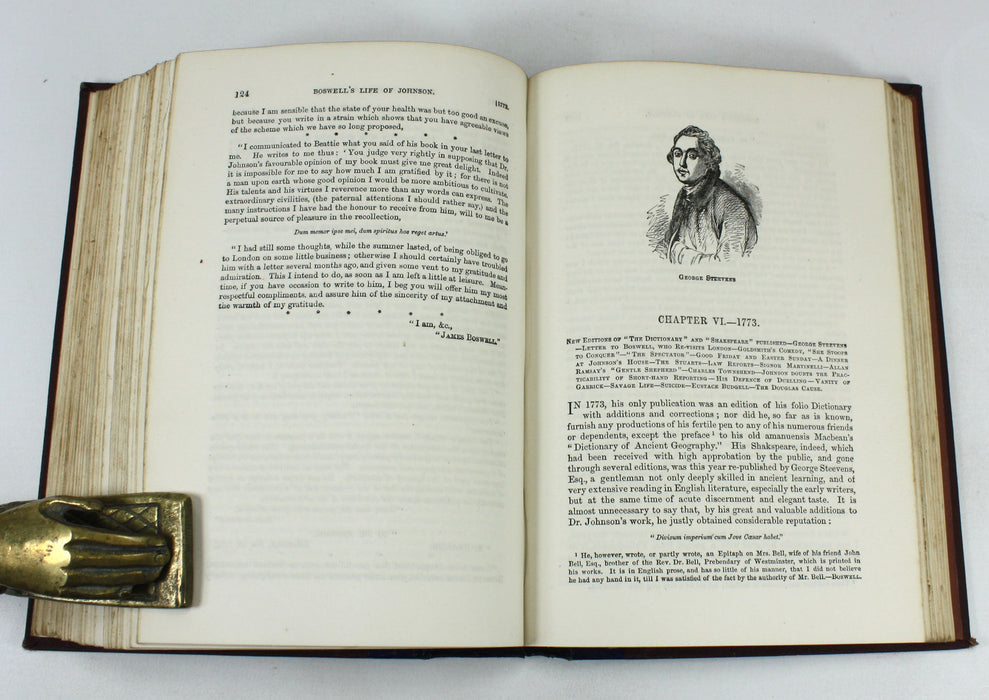 124 BOSWELL'S LIFE OF JOHNSON. [1773.
because I am sensible that the state of your health was but too good an excuse,
but because you write in a strain which shows that you have agreeable views
of the scheme which we have so long proposed,
* * * * * *
"I communicated to Beattie what you said of his book in your last letter to
me. He writes to me thus: 'You judge very rightly in supposing that Dr.
Johnson's favourable opinion of my book must give me great delight. Indeed
it is impossible for me to say how much I am gratified by it; for there is not
a man upon earth whose good opinion I would be more ambitious to cultivate.
His talents and his virtues I reverence more than any words can express. The
extraordinary civilities, (the paternal attentions I should rather say,) and the
many instructions I have had the honour to receive from him, will to me be a
perpetual source of pleasure in the recollection,
Dum memor ipse mei, dum spiritus hos reget artus.'
"I had still some thoughts, while the summer lasted, of being obliged to go
to London on some little business; otherwise I should certainly have troubled
him with a letter several months ago, and given some vent to my gratitude and
admiration. This I intend to do, as soon as I am left a little at leisure. Mean-
time, if you have occasion to write to him, I beg you will offer him my most
respectful compliments, and assure him of the sincerity of my attachment and
the warmth of my gratitude.
* * * * * *
"I am, &c.,
"JAMES BOSWELL."
GEORGE STEEVENS
CHAPTER VI.—1773.
NEW EDITIONS OF "THE DICTIONARY" AND "SHAKSPEARE" PUBLISHED—GEORGE STEEVENS
—LETTER TO BOSWELL, WHO RE-VISITS LONDON—GOLDSMITH'S COMEDY, "SHE STOOPS
TO CONQUER"—"THE SPECTATOR"—GOOD FRIDAY AND EASTER SUNDAY—A DINNER
AT JOHNSON'S HOUSE—THE STUARTS—LAW REPORTS—SIGNOR MARTINELLI—ALLAN
RAMSAY'S "GENTLE SHEPHERD"—CHARLES TOWNSHEND—JOHNSON DOUBTS THE PRAC-
TICABILITY OF SHORT-HAND REPORTING—HIS DEFENCE OF DUELLING—VANITY OF
GARRICK—SAVAGE LIFE—SUICIDE—EUSTACE BUDGELL—THE DOUGLAS CAUSE.
IN 1773, his only publication was an edition of his folio Dictionary
with additions and corrections; nor did he, so far as is known,
furnish any productions of his fertile pen to any of his numerous friends
or dependents, except the preface¹ to his old amanuensis Macbean's
"Dictionary of Ancient Geography." His Shakspeare, indeed, which
had been received with high approbation by the public, and gone
through several editions, was this year re-published by George Steevens,
Esq., a gentleman not only deeply skilled in ancient learning, and of
very extensive reading in English literature, especially the early writers,
but at the same time of acute discernment and elegant taste. It is
almost unnecessary to say that, by his great and valuable additions to
Dr. Johnson's work, he justly obtained considerable reputation:
"Divisum imperium cum Jove Cæsar habet."
¹ He, however, wrote, or partly wrote, an Epitaph on Mrs. Bell, wife of his friend John
Bell, Esq., brother of the Rev. Dr. Bell, Prebendary of Westminster, which is printed in
his works. It is in English prose, and has so little of his manner, that I did not believe
he had any hand in it, till I was satisfied of the fact by the authority of Mr. Bell.—BOSWELL.